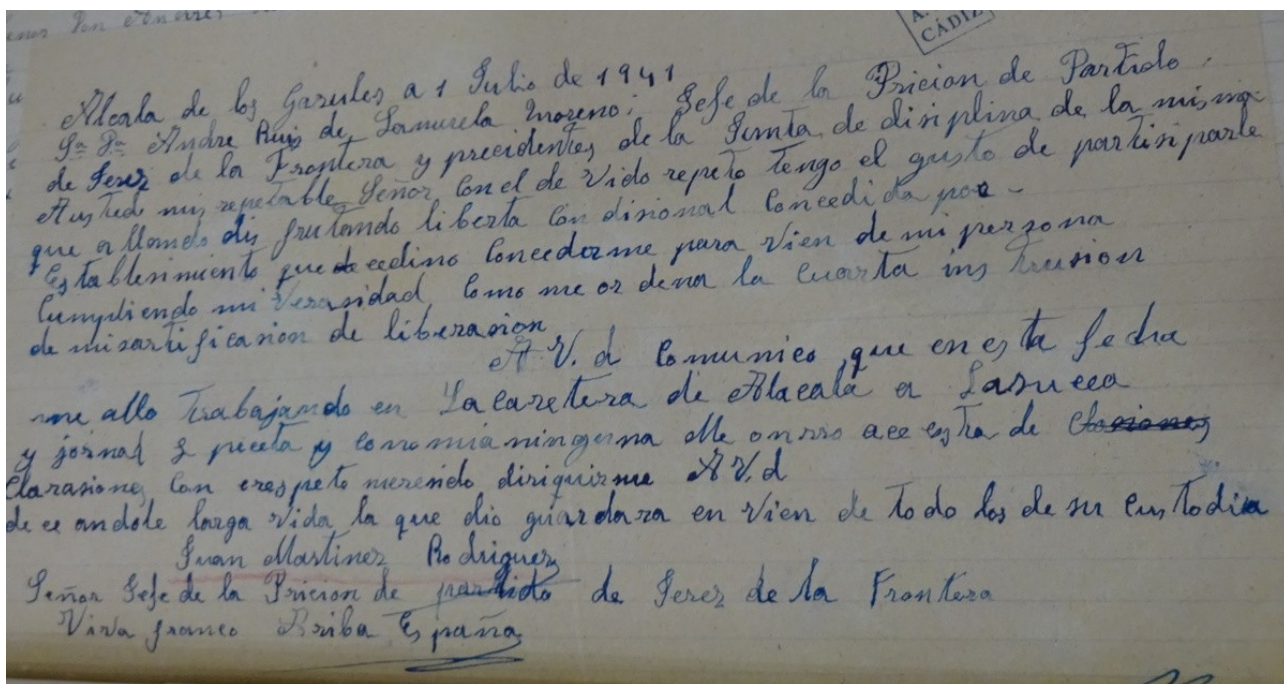 CÁDIZ
Alcala de los Gasules a 1 Julio de 1941
Sr Dn Andre Ruis de Somurela Moreno: Gefe de la Pricion de Partido
de Jerez de la Frontera y precidentes de la Junta de disiplina de la misma
Austed mi repetable Señor Con el de vido repeto tengo el gusto de partisiparle
que a llamdo dis frutando liberta Con disional Concedida por
Establesimiento que se edino Concederme para vien de mi perzona
Cumpliendo mi Verasidad Como me or dena la Cuarta ins trusion
de misartificasion de liberasion
A V. d Comunico que en es ta fecha
me allo Trabajando en La Caretera de Alacala a
y jornal y peceta y conomia ninguna Me onrro ace esta de
Clarasiones Con erespeto merendo diriguirme A V. d
de ce andole larga vida la que dio guardara en vien de todo los de su Custodia
Juan Martinez Rodriguez
Señor Gefe de la Pricion de partido de Jerez de la Frontera
Viva franco Ariba España